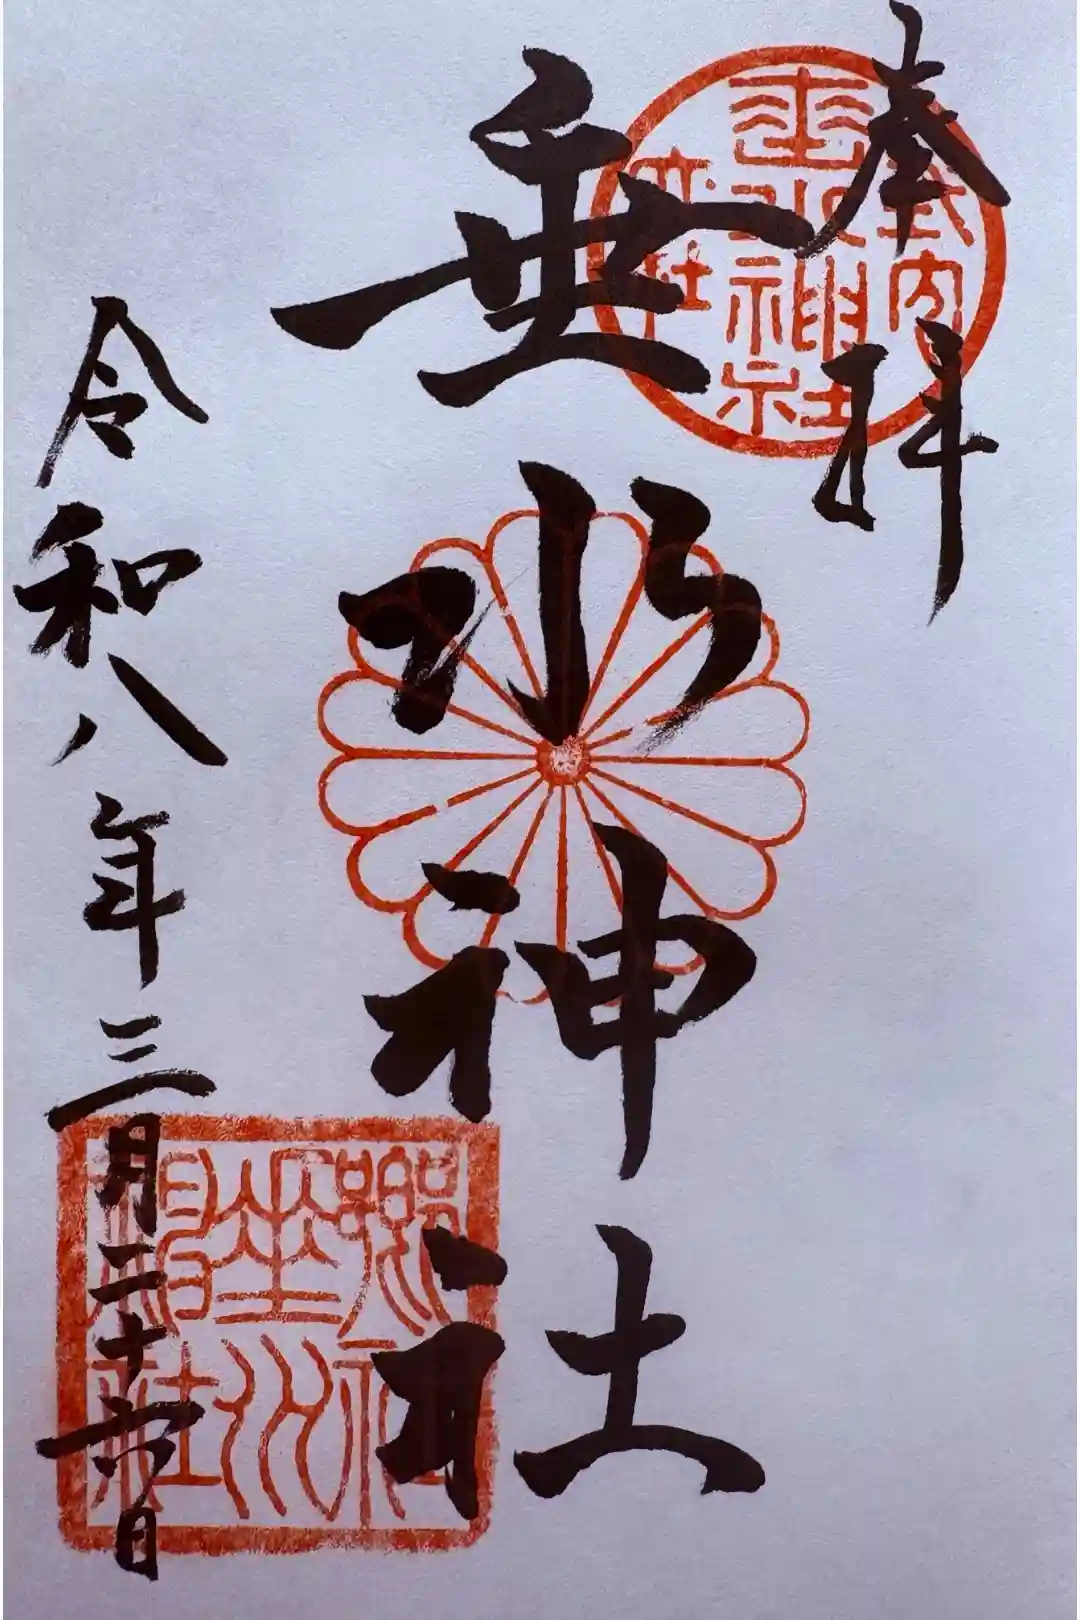 奉拝
式内
垂水神社
垂水神社
令和八年三月二十六日